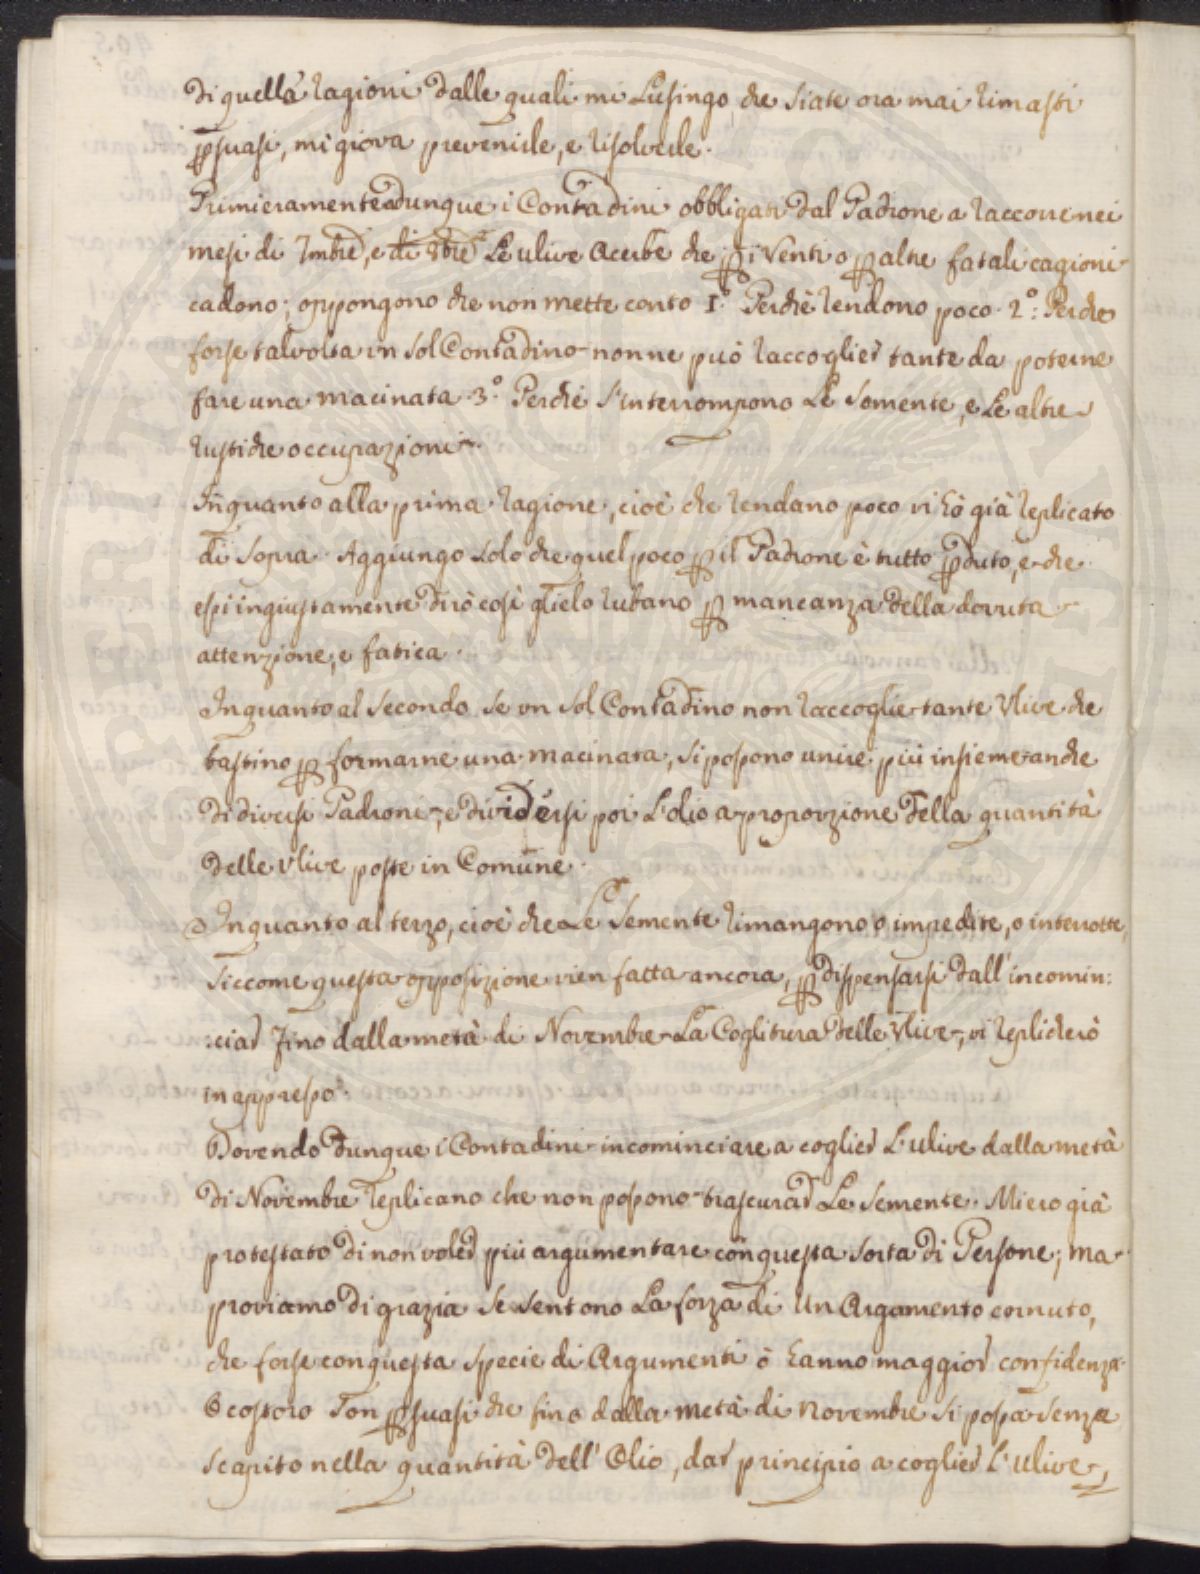 di quella ragioni dalle quali mi Lusingo che siate ora mai rimasti
ꝑsuasi, mi giova prevenirle, e risolverle.
Primieramente dunque i Contadini obbligati dal Padrone a raccorre nei
mesi di 7mbre, e di 8bre Le ulive Acerbe che ꝑ i Venti o ꝑ altre fatali cagioni
cadono; oppongono che non mette conto 1.° Perchè rendono poco. 2°: Perche
forse talvolta un sol Contadino non ne può raccoglier tante da poterne
fare una macinata 3.° Perchè s'interrompono Le Semente, e Le altre
rustiche occupazioni.
Inquanto alla prima ragione, cioè che rendano poco vi hò già replicato
di sopra. Aggiungo solo che quel poco ꝑ il Padrone è tutto ꝑduto, e che
essi ingiustamente dirò così glielo rubano ꝑ mancanza della dovuta
attenzione, e fatica.
Inquanto al Secondo. Se un sol Contadino non raccoglie tante Ulive che
bastino ꝑ formarne una macinata, si possono unire più insieme anche
di diversi Padroni, e dividersi poi L'olio a proporzione della quantità
delle Ulive poste in Comune.
Inquanto al terzo, cioè che Le Semente rimangono o impedite, o interrotte,
siccome questa opposizione vien fatta ancora, ꝑ dispensarsi dall'incomin:
:ciar fino dalla metà di Novembre La Coglitura delle Ulive, vi replicherò
in appresso.
Dovendo dunque i Contadini incominciare a coglier L'ulive dalla metà
di Novembre replicano che non possono trascurar Le Semente. Mi ero già
protestato di non voler più argumentare con questa sorta di Persone; ma
proviamo di grazia se sentono La forza di un Argomento cornuto,
che forse con questa specie di Argumenti ò hanno maggior confidenza.
O costoro son ꝑsuasi che fino dalla metà di Novembre si possa senza
scapito nella quantità dell'Olio, dar principio a coglier L'ulive,